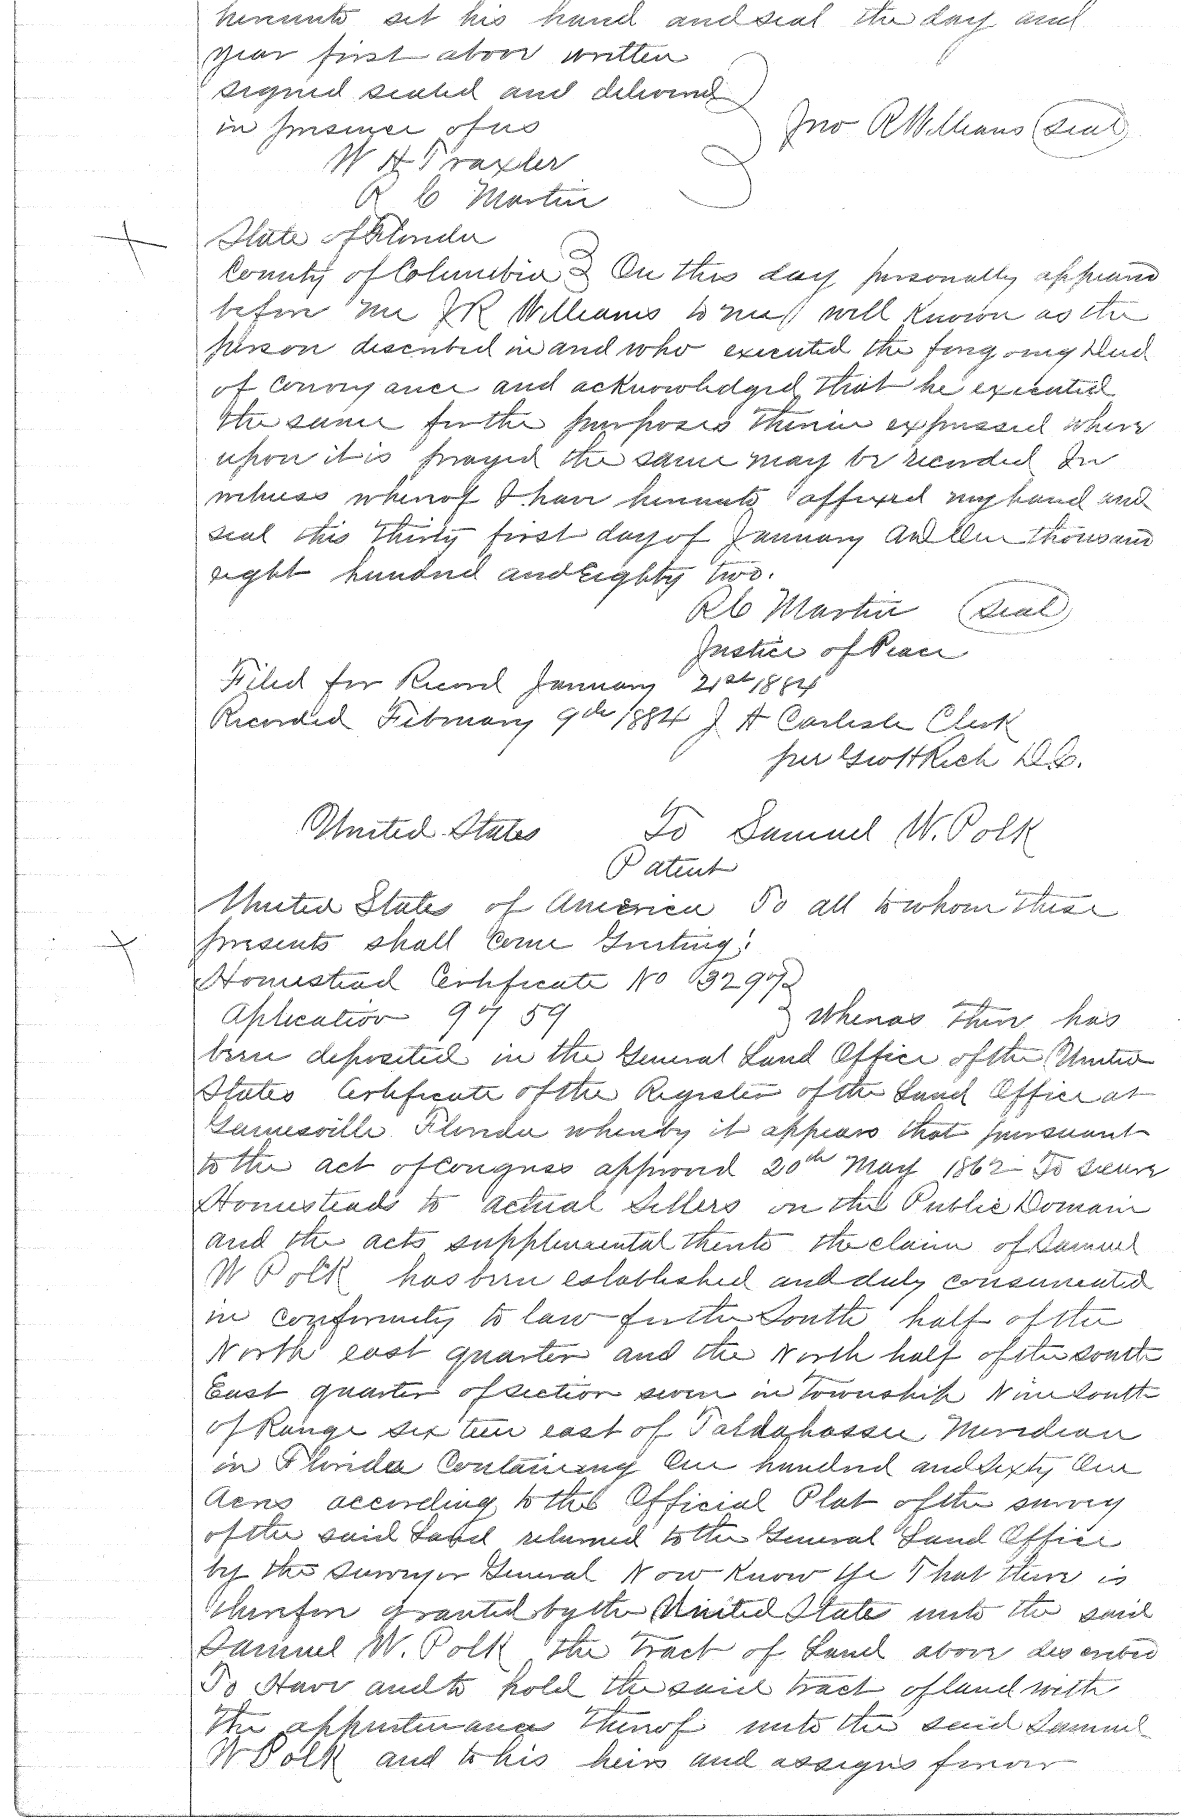 hereunto set his hand and seal the day and
year first above written
signed sealed and delivered
in presence of us
Jno R Williams (Seal)
W H Traxler
R C Martin
State of Florida
County of Columbia } On this day personally appeared
before me J R Williams to me well known as the
person described in and who executed the foregoing Deed
of conveyance and acknowledged that he executed
the same for the purposes therein expressed where
upon it is prayed the same may be recorded In
witness whereof I have hereunto affixed my hand and
seal this Thirty first day of January AD One thousand
eight hundred and Eighty two.
R C Martin (Seal)
Justice of Peace
Filed for Record January 21st 1884
Recorded February 9th 1884 J A Carlisle Clerk
per Geo H Rich D.C.
United States To Samuel W. Polk
Patent
United States of America To all to whom these
presents shall Come Greeting!
Homestead Certificate No 3297
Aplication 9759 } Whereas There has
been deposited in the General Land Office of the United
States Certificate of the Register of the Land Office at
Gainesville Florida whereby it appears that pursuant
to the act of Congress approved 20th May 1862 To secure
Homesteads to actual Settlers on the Public Domain
and the acts supplemental thereto the claim of Samuel
W Polk has been established and duly consumated
in conformity to law for the South half of the
North east quarter and the North half of the south
East quarter of section seven in Township Nine South
of Range six teen east of Tallahassee Meridian
in Florida Containing One hundred and Sixty One
Acres according to the Official Plat of the survey
of the said Land returned to the General Land Office
by the Surveyor General Now Know Ye That there is
therefore granted by the United States unto the said
Samuel W. Polk the tract of Land above described
To Have and to hold the said tract of land with
the appurtenances thereof unto the said Samuel
W Polk and to his heirs and assigns forever